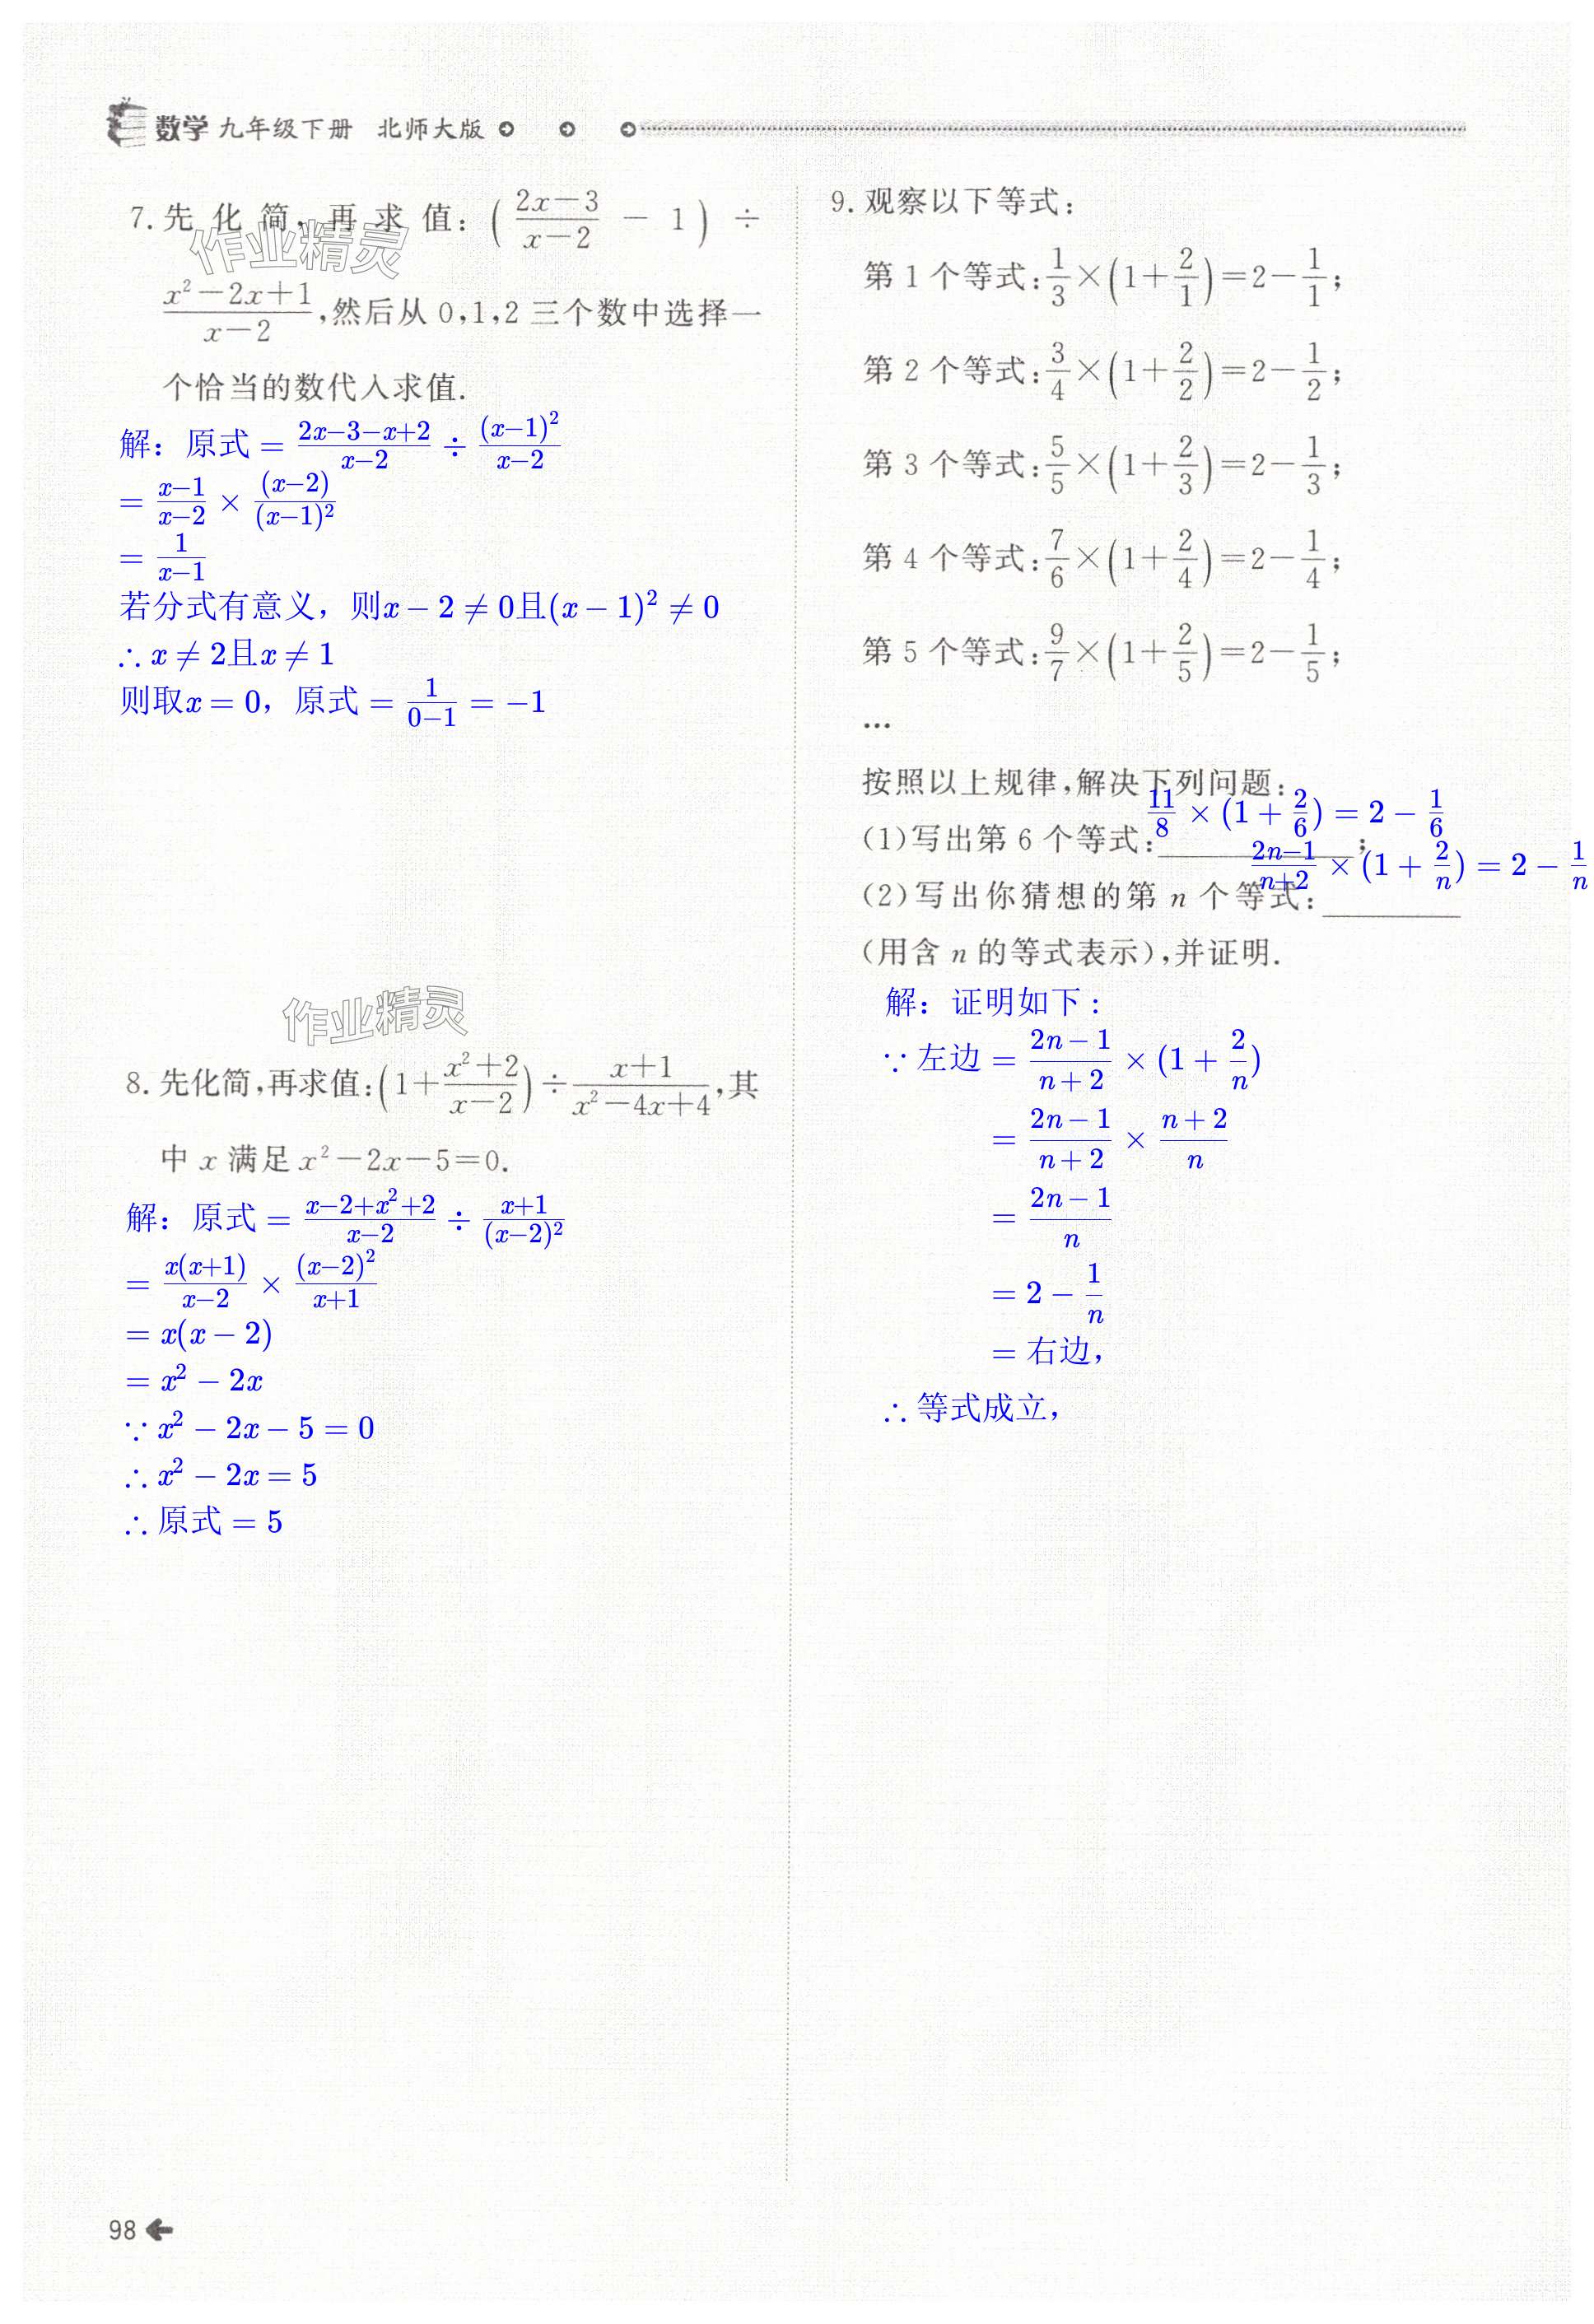 数学 九年级下册 北师大版
7. 先化简，再求值：(\frac{2x-3}{x-2} - 1) ÷
\frac{x²-2x+1}{x-2}，然后从 0,1,2 三个数中选择一
个恰当的数代入求值.
解：原式 = \frac{2x-3-x+2}{x-2} ÷ \frac{(x-1)²}{x-2}
= \frac{x-1}{x-2} × \frac{(x-2)}{(x-1)²}
= \frac{1}{x-1}
若分式有意义，则x - 2 ≠ 0且(x - 1)² ≠ 0
∴ x ≠ 2且x ≠ 1
则取x = 0，原式 = \frac{1}{0-1} = -1
作业精灵
作业精灵
8. 先化简,再求值:(1+\frac{x²+2}{x-2})÷\frac{x+1}{x²-4x+4},其
中 x 满足 x²-2x-5=0.
解：原式 = \frac{x-2+x²+2}{x-2} ÷ \frac{x+1}{(x-2)²}
= \frac{x(x+1)}{x-2} × \frac{(x-2)²}{x+1}
= x(x - 2)
= x² - 2x
∵ x² - 2x - 5 = 0
∴ x² - 2x = 5
∴ 原式 = 5
9. 观察以下等式:
第 1 个等式:\frac{1}{3}×(1+\frac{2}{1})=2-\frac{1}{1};
第 2 个等式:\frac{3}{4}×(1+\frac{2}{2})=2-\frac{1}{2};
第 3 个等式:\frac{5}{5}×(1+\frac{2}{3})=2-\frac{1}{3};
第 4 个等式:\frac{7}{6}×(1+\frac{2}{4})=2-\frac{1}{4};
第 5 个等式:\frac{9}{7}×(1+\frac{2}{5})=2-\frac{1}{5};
…
按照以上规律,解决下列问题:
\frac{11}{8} × (1 + \frac{2}{6}) = 2 - \frac{1}{6}
(1)写出第 6 个等式:____________;
\frac{2n-1}{n+2} × (1 + \frac{2}{n}) = 2 - \frac{1}{n}
(2)写出你猜想的第 n 个等式:________
(用含 n 的等式表示),并证明.
解：证明如下：
∵ 左边 = \frac{2n-1}{n+2} × (1 + \frac{2}{n})
= \frac{2n-1}{n+2} × \frac{n+2}{n}
= \frac{2n-1}{n}
= 2 - \frac{1}{n}
= 右边，
∴ 等式成立，
98